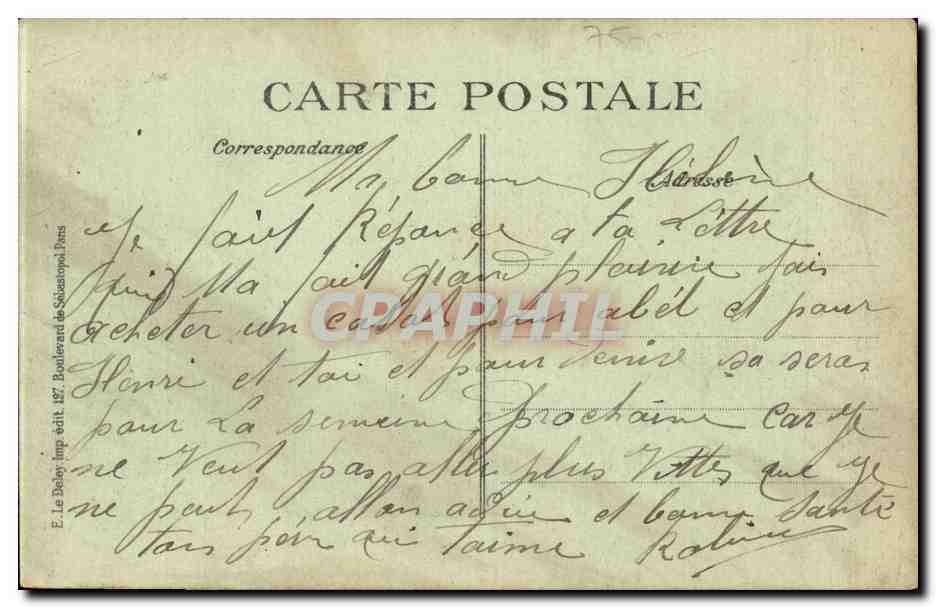 CARTE POSTALE
Correspondance
Adresse
Ma bonne Hélène
Je fait Réponce a ta Lèttre
qui Ma fait grand plaisire fais
acheter un pour abél et pour
Henri et toi et pour Denise sa seras
pour La semeine prochaine car je
ne Veut pas aller plus Vittes que je
ne peut allon adieu et bonne santé
ton pére qui taime
E. Le Deley Imp. édit. 127. Boulevard de Sébastopol. Paris
CPAPHIL
75